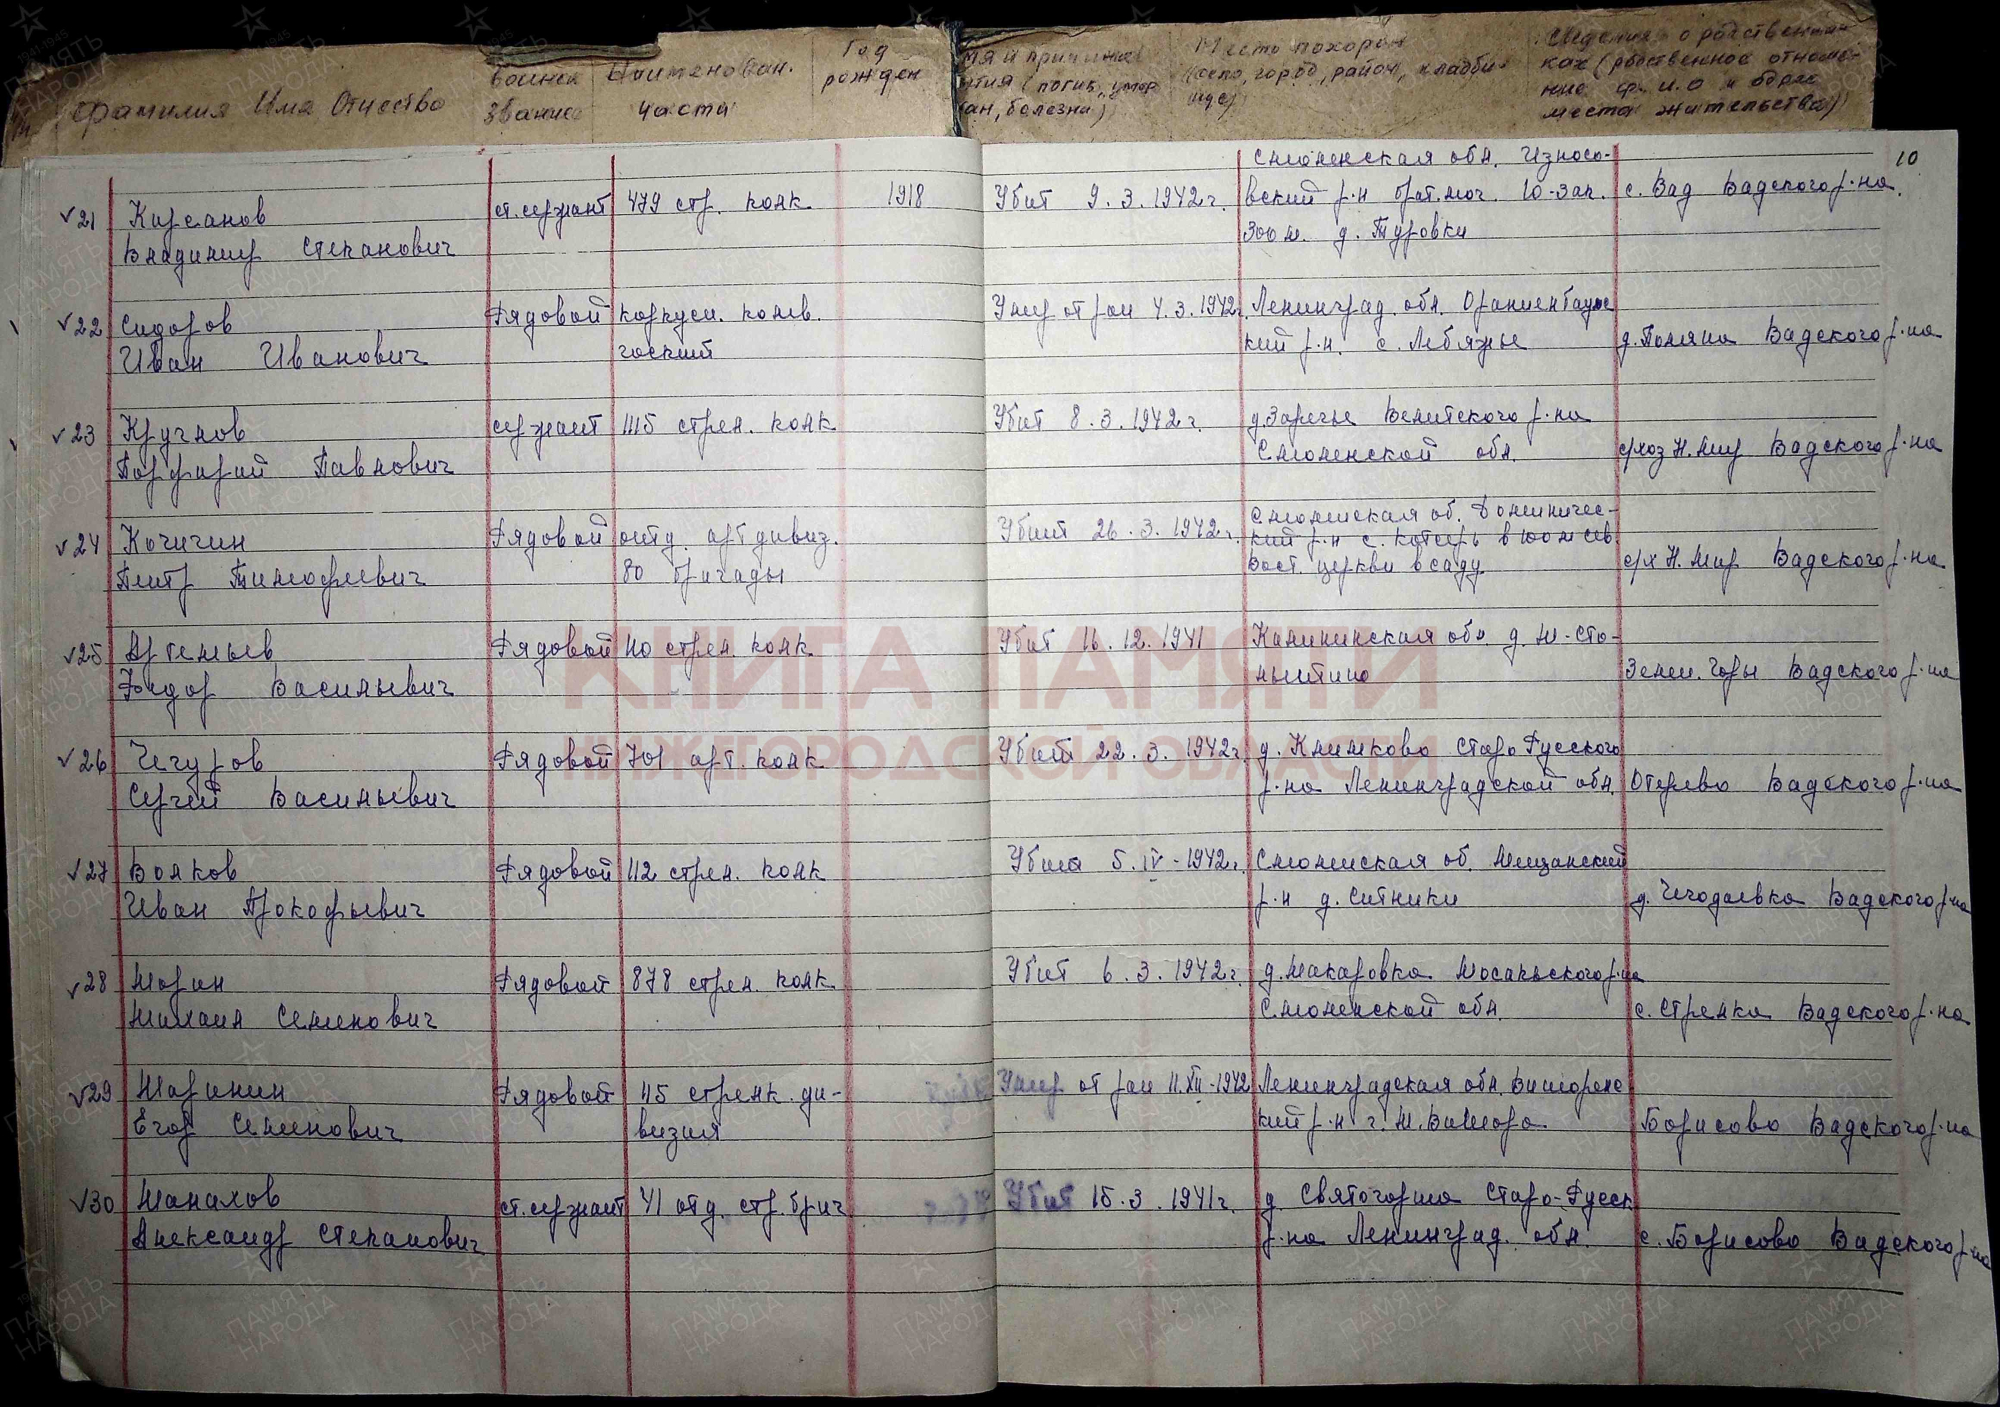 Фамилия Имя Отчество
Воинск звание
Наименован. части
Год рожден
Место похорон
(село, город, район, кладбище)
Сведения о родственниках (родственное отношение ф.и.о и адрес места жительства)
10
21 Кирсанов Владимир Степанович
ст. сержант
479 стр. полк
1918
Убит 9.3.1942г.
Смоленская обл. Износо-
вский р-н брат. мог. Ю-зап.
300 м. д. Туровки
с. Вад Вадского р-на.
22 Сидоров Иван Иванович
Рядовой
Умер от ран 4.3.1942г.
Ленинград. обл. Ораниенбаумс
кий р.н. с. Лебяжье
д. Поляна Вадского р-на
23 Круглов
Порфирий Павлович
сержант
1115 стрел. полк
Убит 8.3.1942г.
д. Заречье Велитского р-на
Смоленской обл.
с/хоз Н. Мир Вадского р-на
24 Кочигин
Петр Тимофеевич
Рядовой
отд. арт дивиз.
80 бригады
Убит 26.3.1942г.
Смоленская об. Доминичес-
кий р-н с. Котерь в 100м сев.
вост. церкви в саду
с/х Н. Мир Вадского р-на
25 Артемьев
Федор Васильевич
Рядовой
40 стрел. полк
Убит 16.12.1941
Калининская обл. д. М-Сто-
лыпино
Зелен. Горы Вадского р-на
26 Чегуров
Сергей Васильевич
Рядовой
701 арт. полк
Убит 22.3.1942г.
д. Климково Старо Русского
р-на Ленинградской обл.
Отерево Вадского р-на
27 Волков
Иван Прокофьевич
Рядовой
112 стрел. полк
Убит 5.IV-1942г.
Смоленская об. Мещанский
р-н д. Ситники
д. Чегодаевка Вадского р-на
28 Марин
Михаил Семенович
Рядовой
878 стрел. полк
Убит 6.3.1942г.
д. Макаровка Мосальского р-на
Смоленской обл.
с. Стрелка Вадского р-на
29 Маринин
Егор Семенович
Рядовой
115 стрелк. ди-
визия
Умер от ран 11.XII-1942
Ленинградская обл. Вишерс
кий р-н г. М. Вишера
Борисово Вадского р-на
30 Малахов
Александр Степанович
ст. сержант
41 отд. стр. бриг
Убит 15.3.1941г.
д. Святогорша Старо-Русск
р-на Ленинград. обл.
с. Борисово Вадского р-на
КНИГА ПАМЯТИ
НИЖЕГОРОДСКОЙ ОБЛАСТИ
ПАМЯТЬ НАРОДА